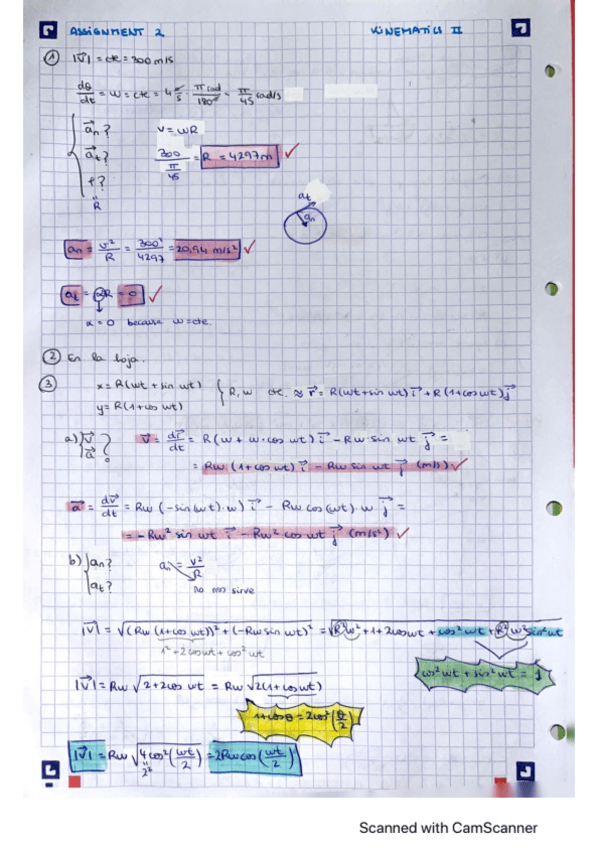 ASSIGNMENT 2 KINEMATICS II
① |v⃗| = cte = 300 m/s
dθ/dt = w = cte = 4 °/s · π rad/180° = π/45 rad/s
a⃗n? v = wR
a⃗t? 300/(π/45) = R = 4297m ✓
r?
"
R
at
an
an = v²/R = 300²/4297 = 20,94 m/s² ✓
at = αR = 0 ✓
α = 0 because w = cte.
② En la hoja.
③ x = R(wt + sin wt) { R, w cte. ≈ r⃗ = R(wt + sin wt) i⃗ + R(1+cos wt) j⃗
y = R(1+cos wt)
a) v⃗ a⃗ ? v⃗ = dr⃗/dt = R(w + w·cos wt) i⃗ − Rw·sin wt j⃗ =
= Rw (1+cos wt) i⃗ − Rw sin wt j⃗ (m/s) ✓
a⃗ = dv⃗/dt = Rw (−sin(wt)·w) i⃗ − Rw cos(wt)·w j⃗ =
= −Rw² sin wt i⃗ − Rw² cos wt j⃗ (m/s²) ✓
b) an? an = v²/R
at? no nos sirve
|v⃗| = √(Rw (1+cos wt))² + (−Rw sin wt)² = √R²w² + 1 + 2cos wt + cos² wt + R²w² sin² wt
1² + 2cos wt + cos² wt
cos² wt + sin² wt = 1
|v⃗| = Rw √2+2cos wt = Rw √2(1+cos wt)
1+cos θ = 2cos² (θ/2)
|v⃗| = Rw √4cos² (wt/2) = 2Rw cos (wt/2)
"
2²
Scanned with CamScanner